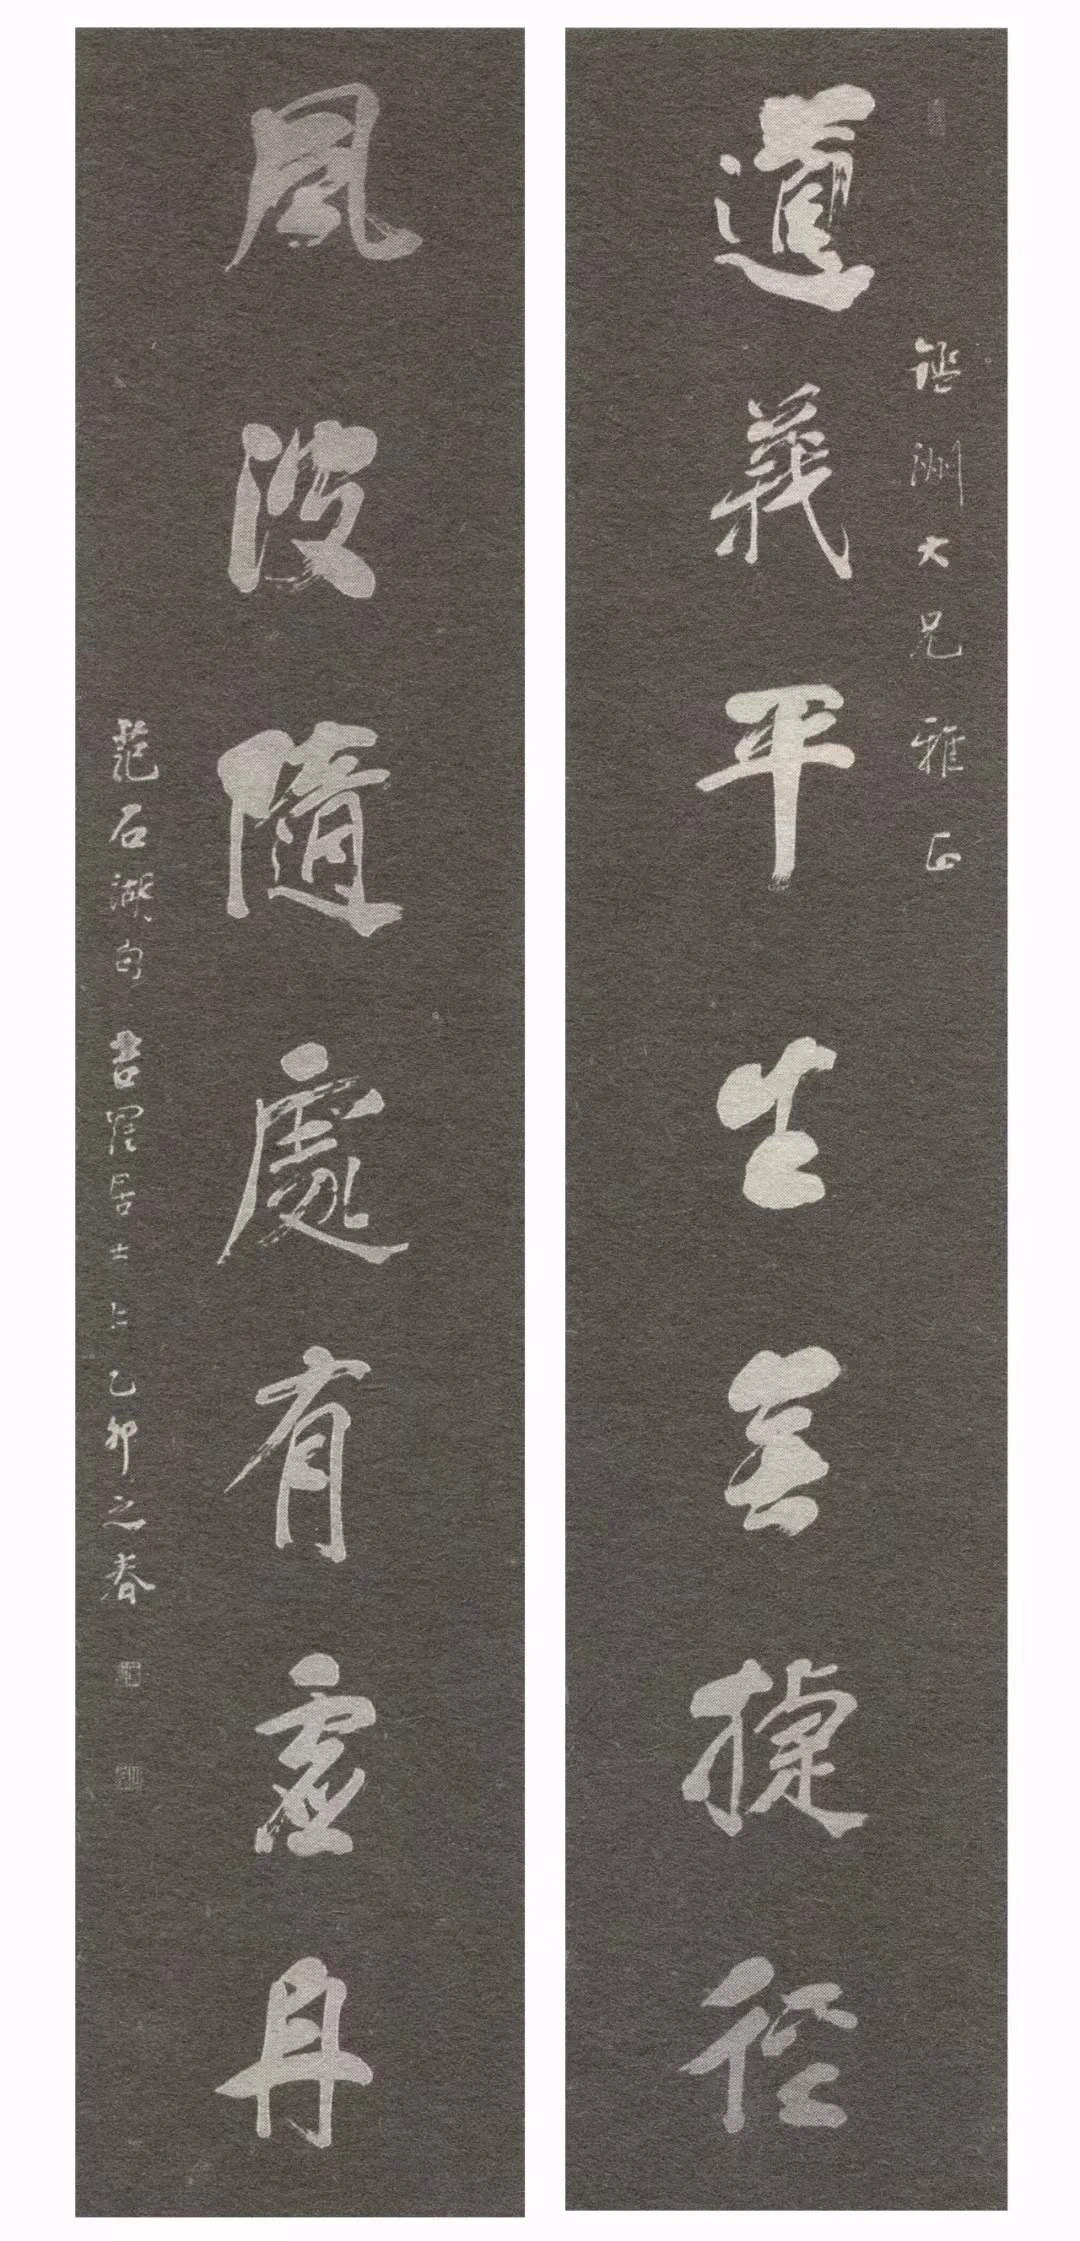 道義平生無捷徑
洲大兄雅正
風波隨處有虛舟
范石湖句 居士 乙卯之春